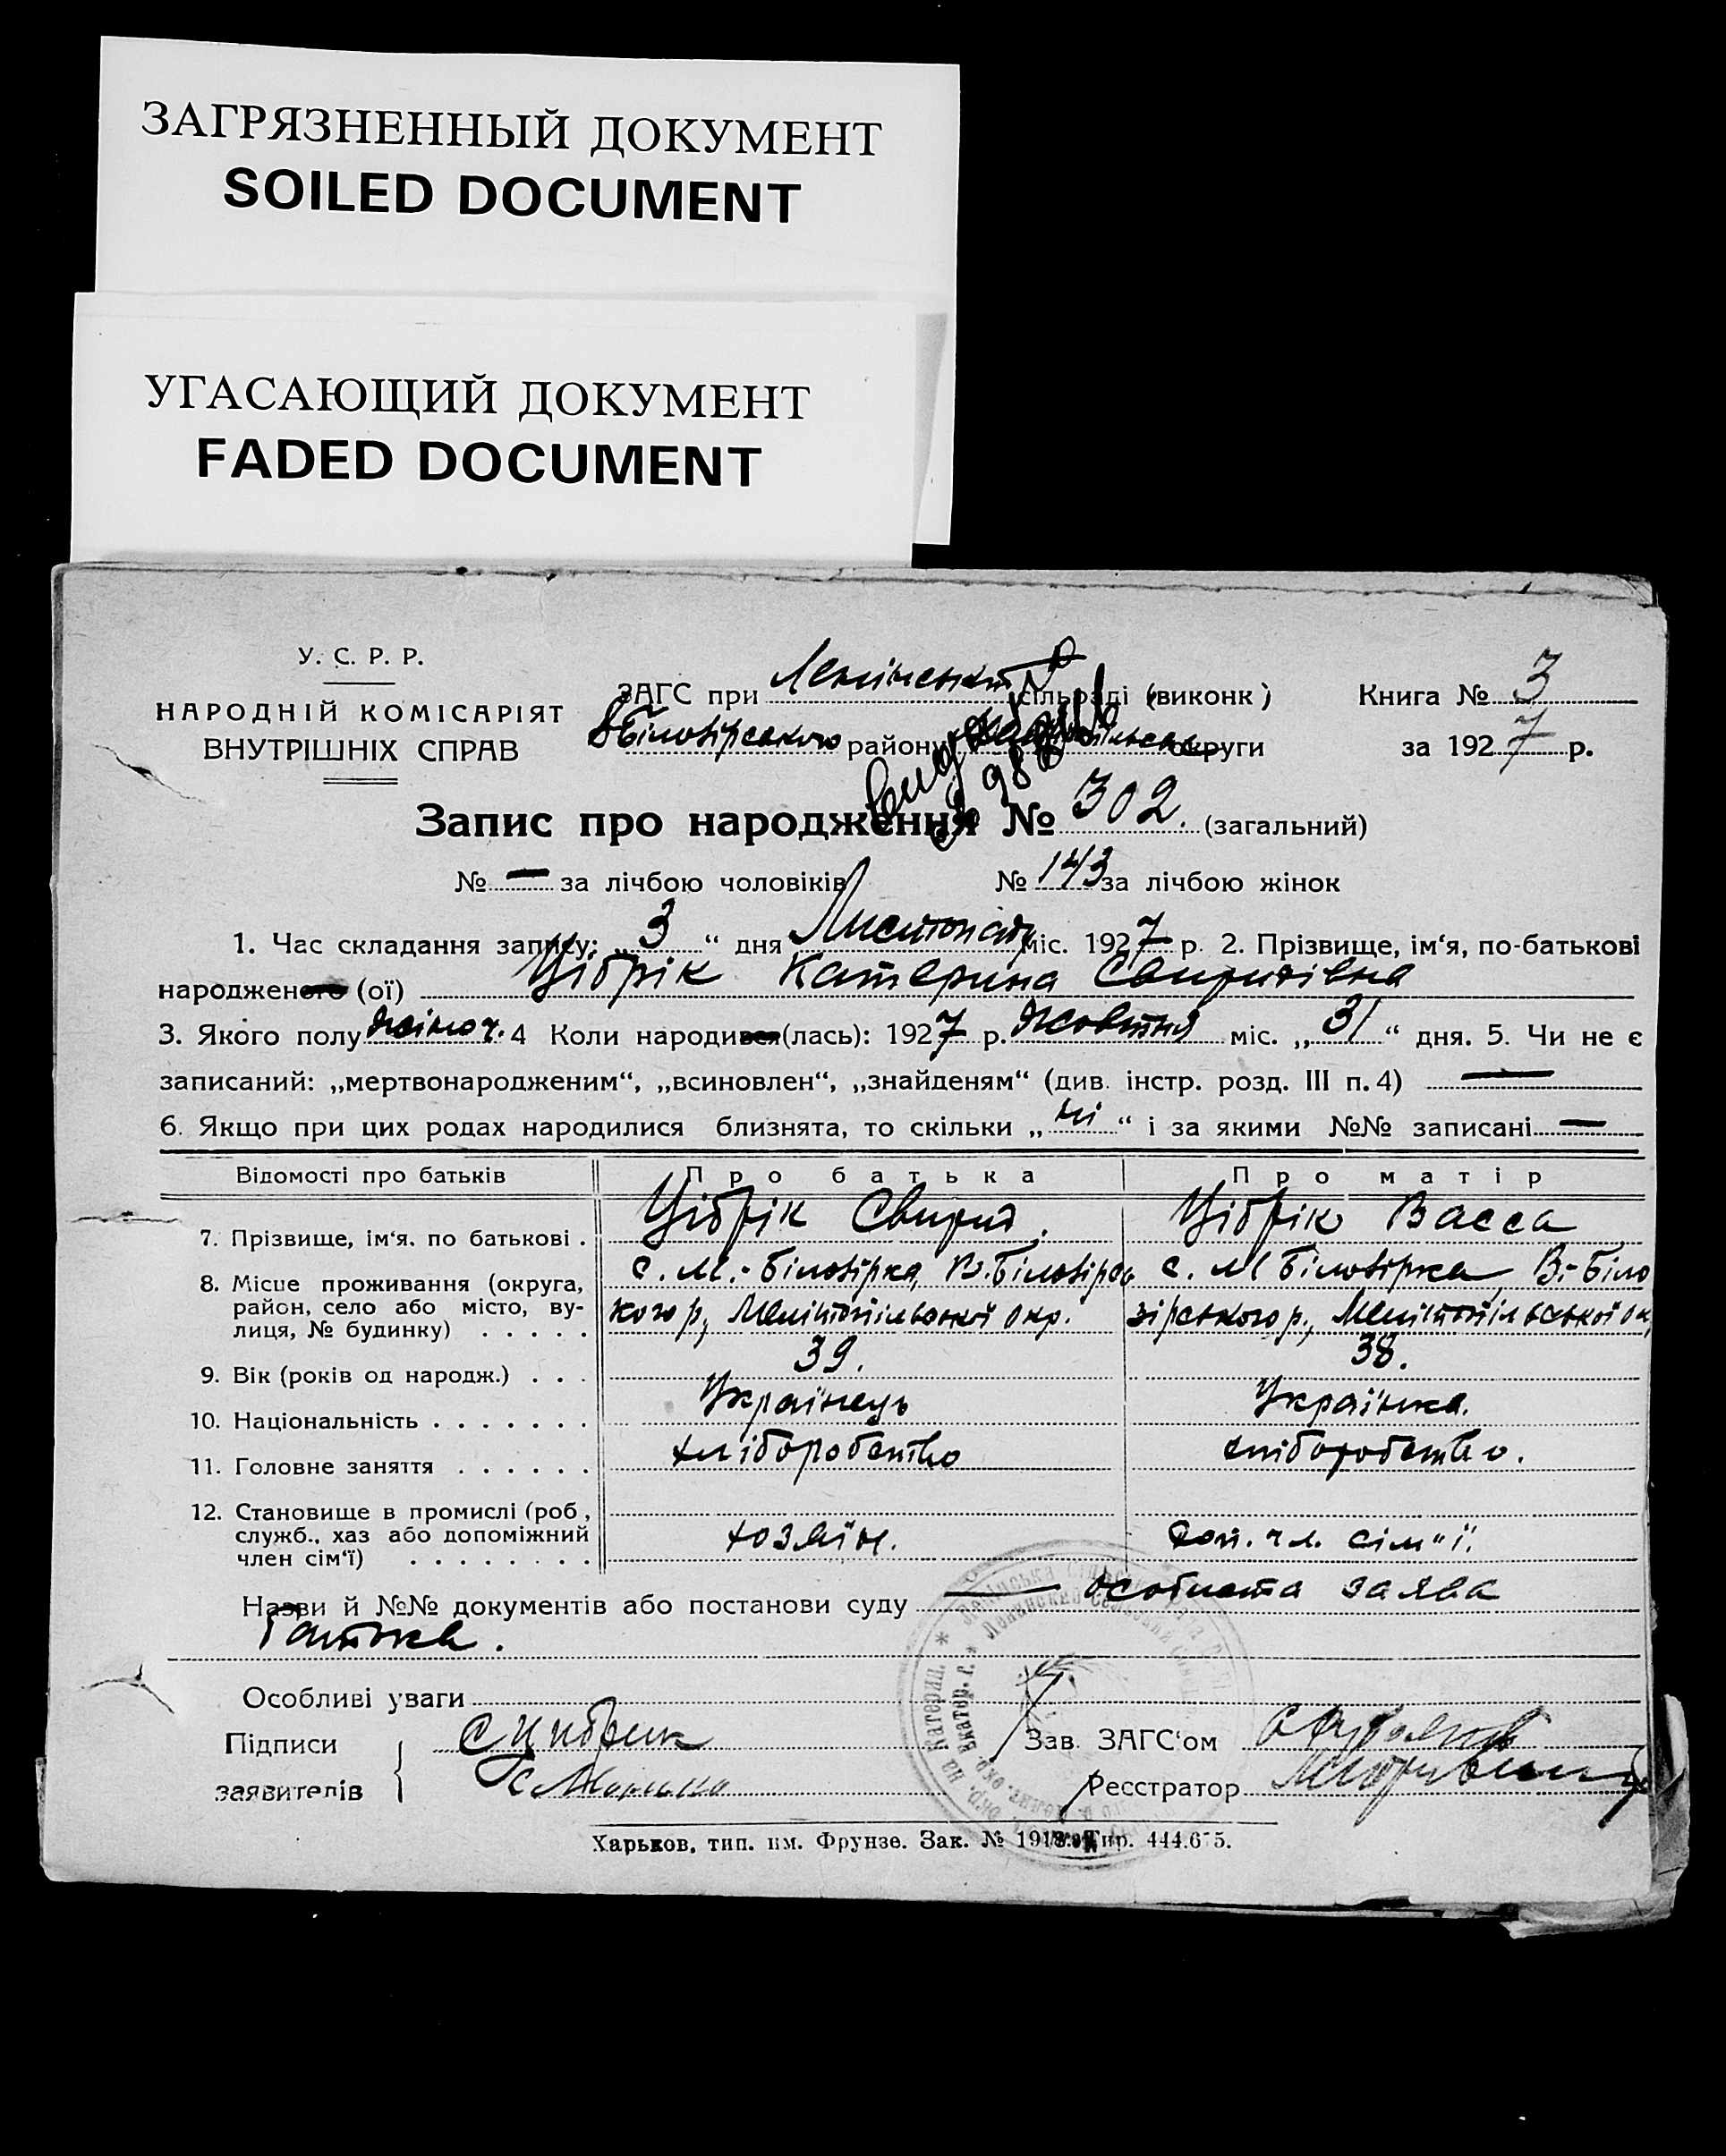 ЗАГРЯЗНЕННЫЙ ДОКУМЕНТ
SOILED DOCUMENT
УГАСАЮЩИЙ ДОКУМЕНТ
FADED DOCUMENT
У. С. Р. Р.
НАРОДНІЙ КОМІСАРІЯТ
ВНУТРІШНІХ СПРАВ
ЗАГС при Ленінськ сільраді (виконк)
В Білозірського району округи
Книга № 3
за 1927 р.
Запис про народження № 302. (загальний)
№ — за лічбою чоловіків № 143 за лічбою жінок
1. Час складання запису: „3“ дня Листопаду міс. 1927 р. 2. Прізвище, ім‘я, по-батькові
народженого (ої) Цібрік Катерина Свиридівна
3. Якого полу жіноч. 4 Коли народився (лась): 1927 р. Жовтня міс. „31“ дня. 5. Чи не є
записаний: „мертвонародженим“, „всиновлен“, „знайденям“ (див. інстр. розд. III п. 4) —
6. Якщо при цих родах народилися близнята, то скільки „ні“ і за якими №№ записані —
Відомості про батьків Про батька Про матір
7. Прізвище, ім‘я, по батькові . Цібрік Свирид. Цібрік Васса
8. Місце проживання (округа, район, село або місто, ву-лиця, № будинку) . . . . . с. М.-Білозірка, В.Білозірсь кого р, Мелітопільської окр. с. М Білозірка, В.-Біло зірського р., Мелітопільської ок,
9. Вік (років од народж.) . . . 39. 38.
10. Національність . . . . . . . Українець Українка.
11. Головне заняття . . . . . . хліборобство хліборобство.
12. Становище в промислі (роб, служб., хаз або допоміжний член сім‘ї) . . . . . . . . хозяїн. доп. чл. сім"ї.
Назви й №№ документів або постанови суду — особиста заява
батька.
Особливі уваги
Підписи
заявителів
С Цибрик
Зав. ЗАГС‘ом
Реєстратор
Харьков, тип. им. Фрунзе. Зак. № Тир.